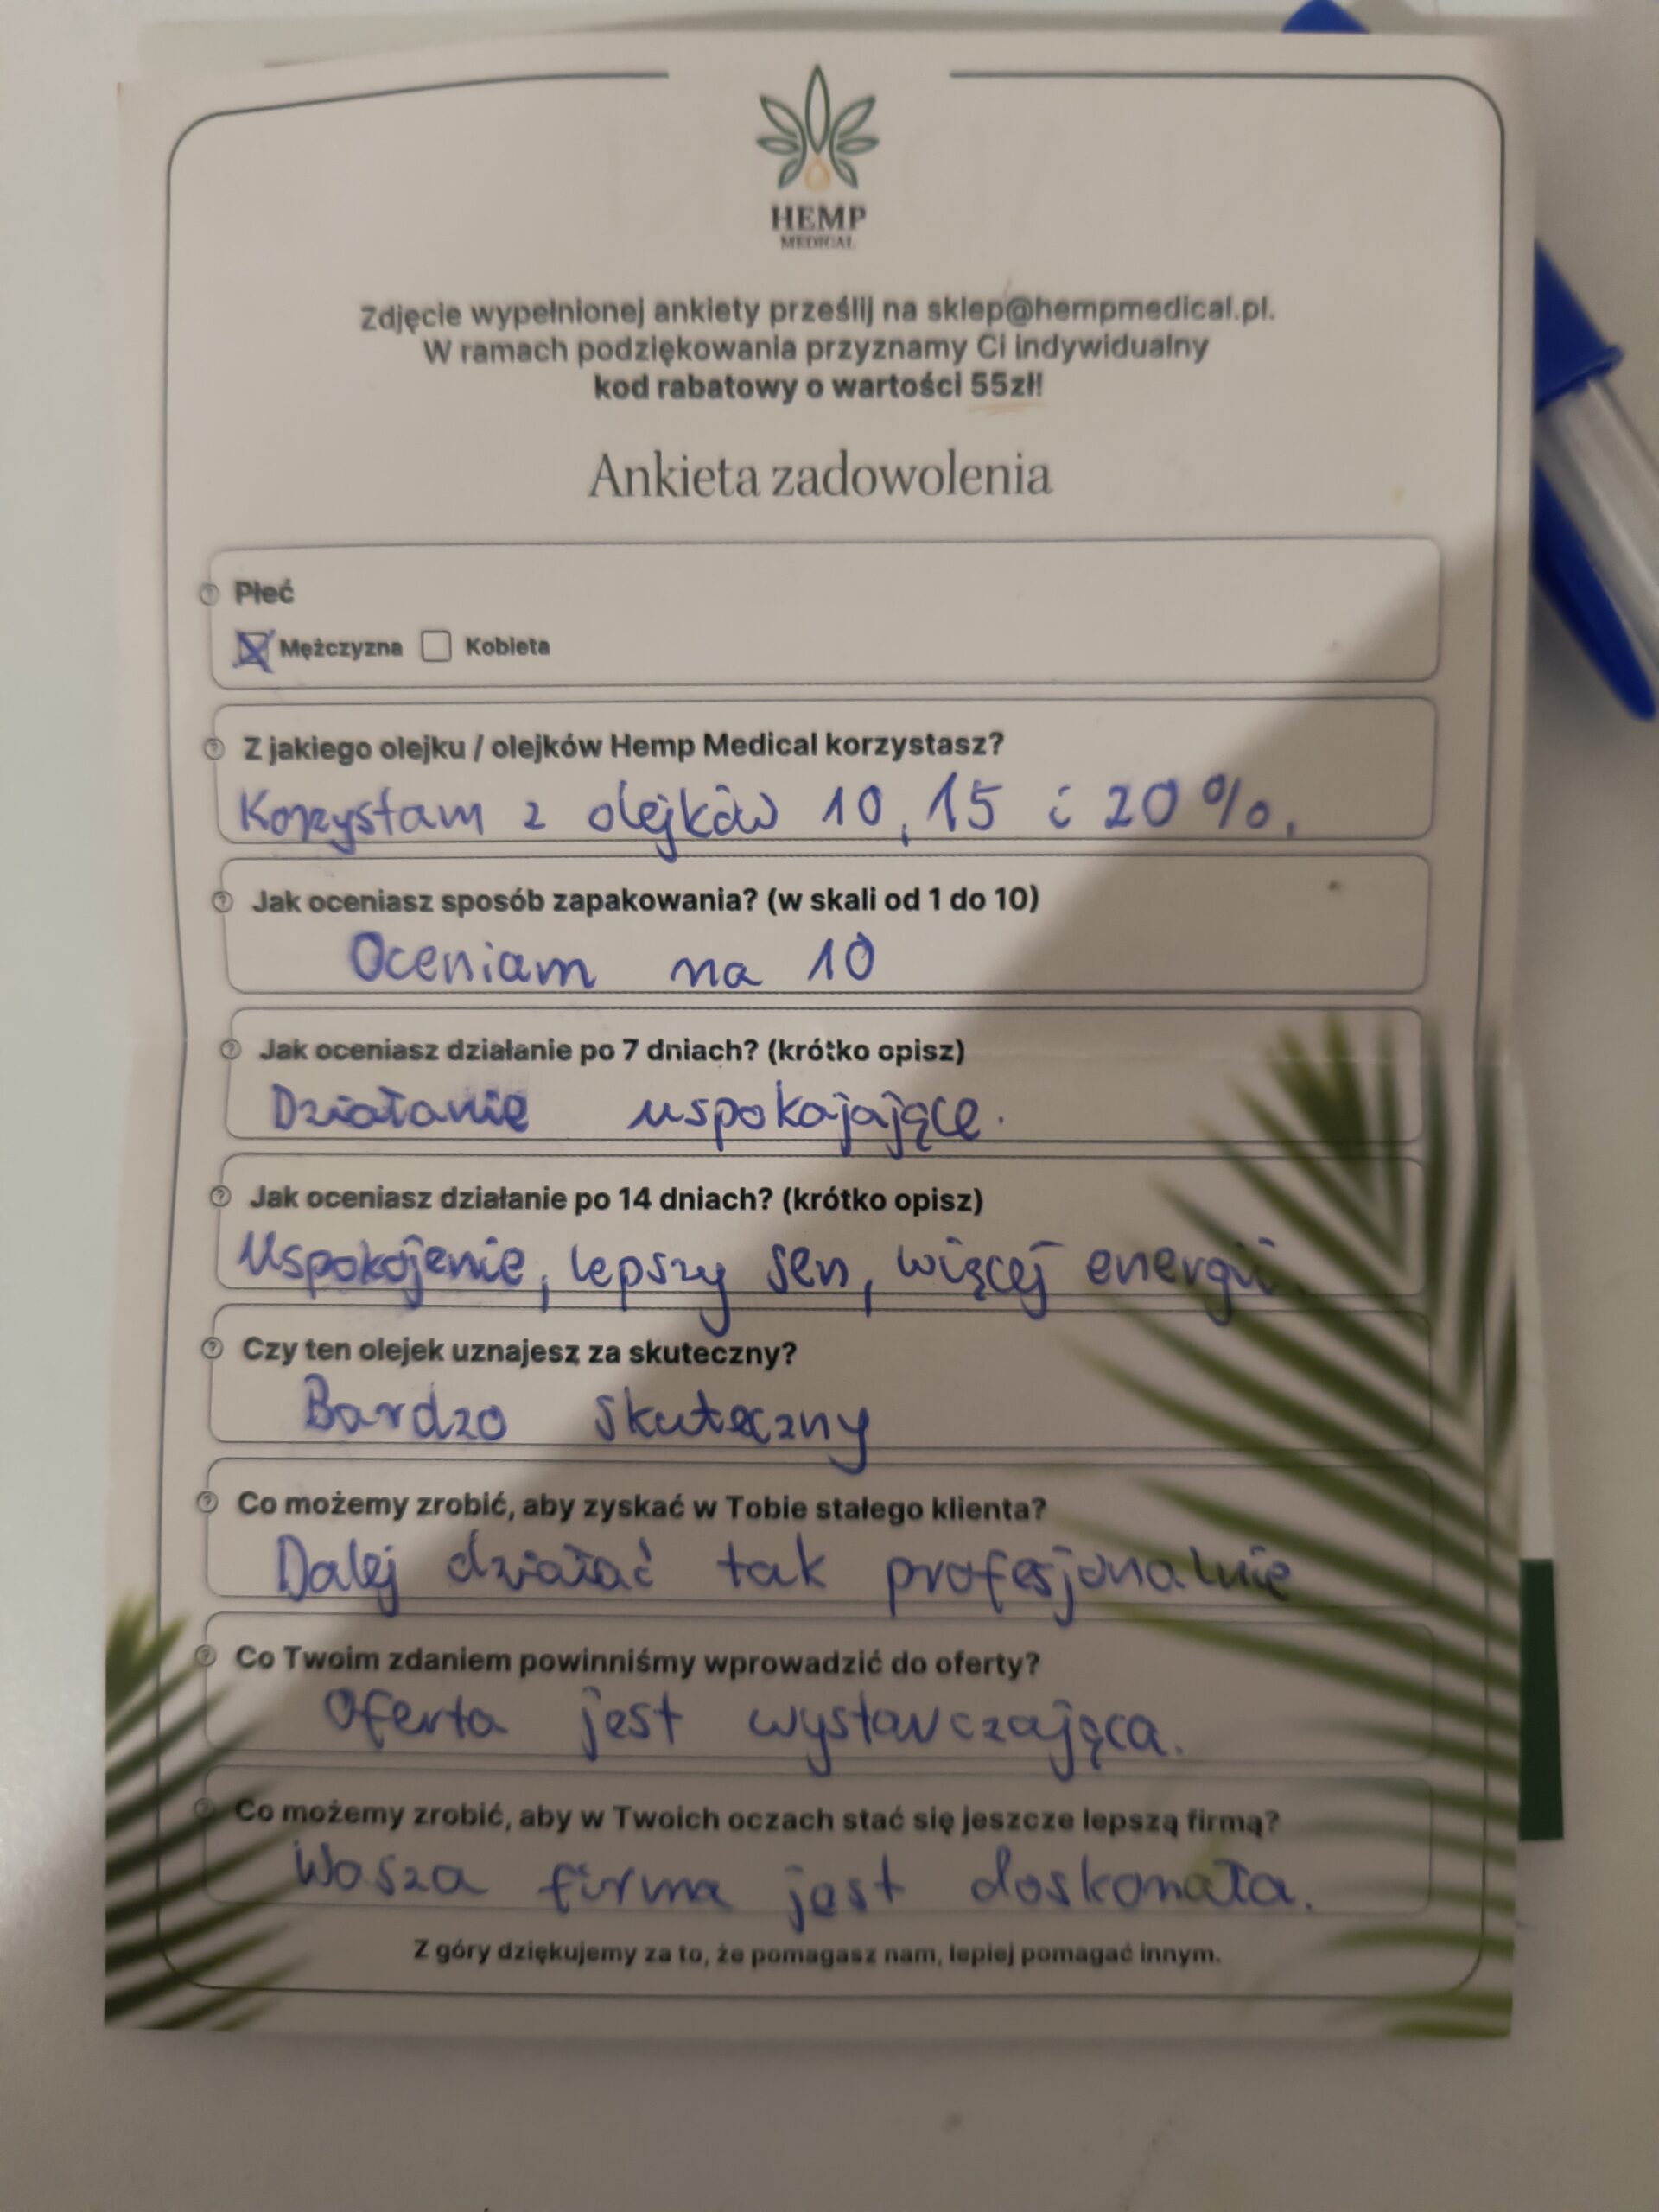 HEMP
MEDICAL
Zdjęcie wypełnionej ankiety prześlij na sklep@hempmedical.pl.
W ramach podziękowania przyznamy Ci indywidualny
kod rabatowy o wartości 55zł!
Ankieta zadowolenia
Płeć
Mężczyzna Kobieta
Z jakiego olejku / olejków Hemp Medical korzystasz?
Korzystam z olejków 10, 15 i 20%.
Jak oceniasz sposób zapakowania? (w skali od 1 do 10)
Oceniam na 10
Jak oceniasz działanie po 7 dniach? (krótko opisz)
Działanie uspokajające.
Jak oceniasz działanie po 14 dniach? (krótko opisz)
Uspokojenie, lepszy sen, więcej energii.
Czy ten olejek uznajesz za skuteczny?
Bardzo skuteczny
Co możemy zrobić, aby zyskać w Tobie stałego klienta?
Dalej działać tak profesjonalnie
Co Twoim zdaniem powinniśmy wprowadzić do oferty?
Oferta jest wystarczająca.
Co możemy zrobić, aby w Twoich oczach stać się jeszcze lepszą firmą?
Wasza firma jest doskonała.
Z góry dziękujemy za to, że pomagasz nam, lepiej pomagać innym.